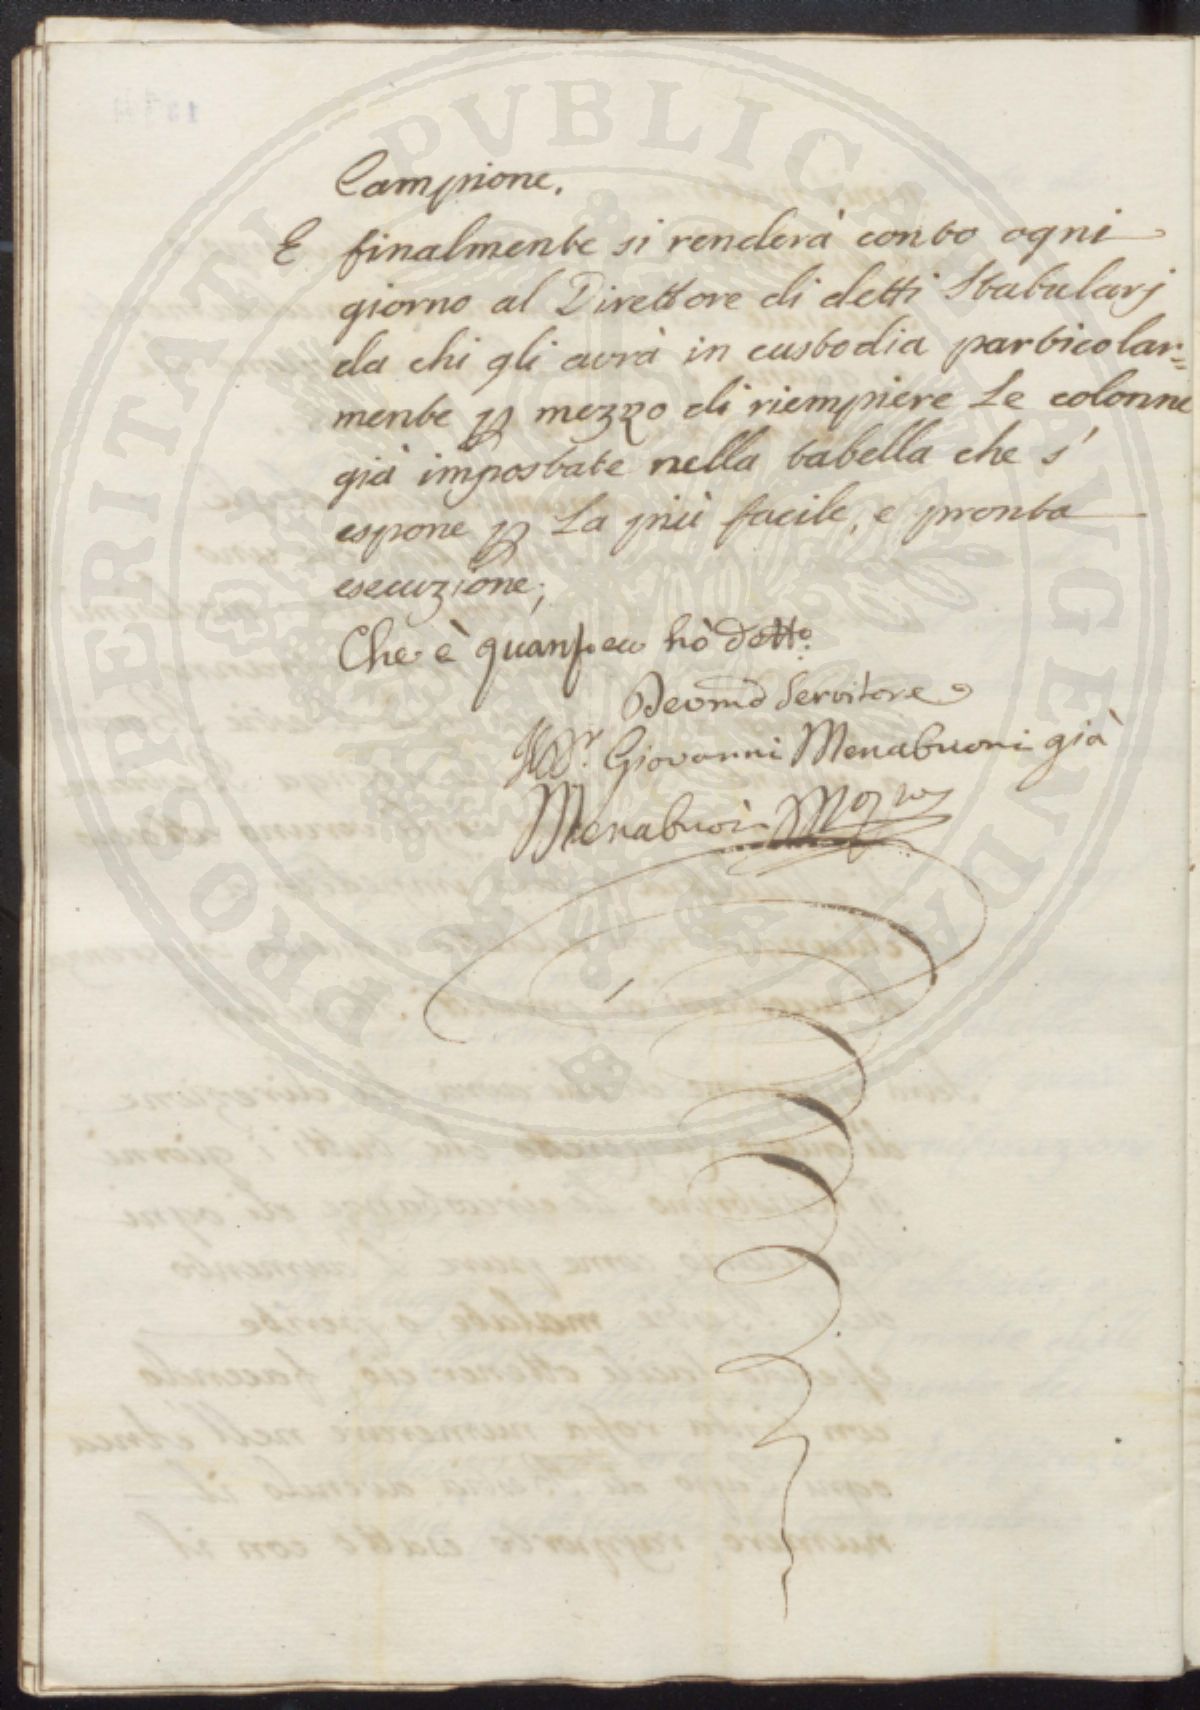 PROSPERITATI PUBLICAE AUGENDAE
Campione.
E finalmente si renderà conto ogni
giorno al Direttore di detti Stabularj
da chi gli avrà in custodia particolar=
mente p mezzo di riempiere le colonne
già impostate nella tabella che s'
espone p la più facile, e pronta
esecuzione;
Che è quanto hò detto:
Devmo Servitore
Giovanni Menabuoni già
Menabuoi